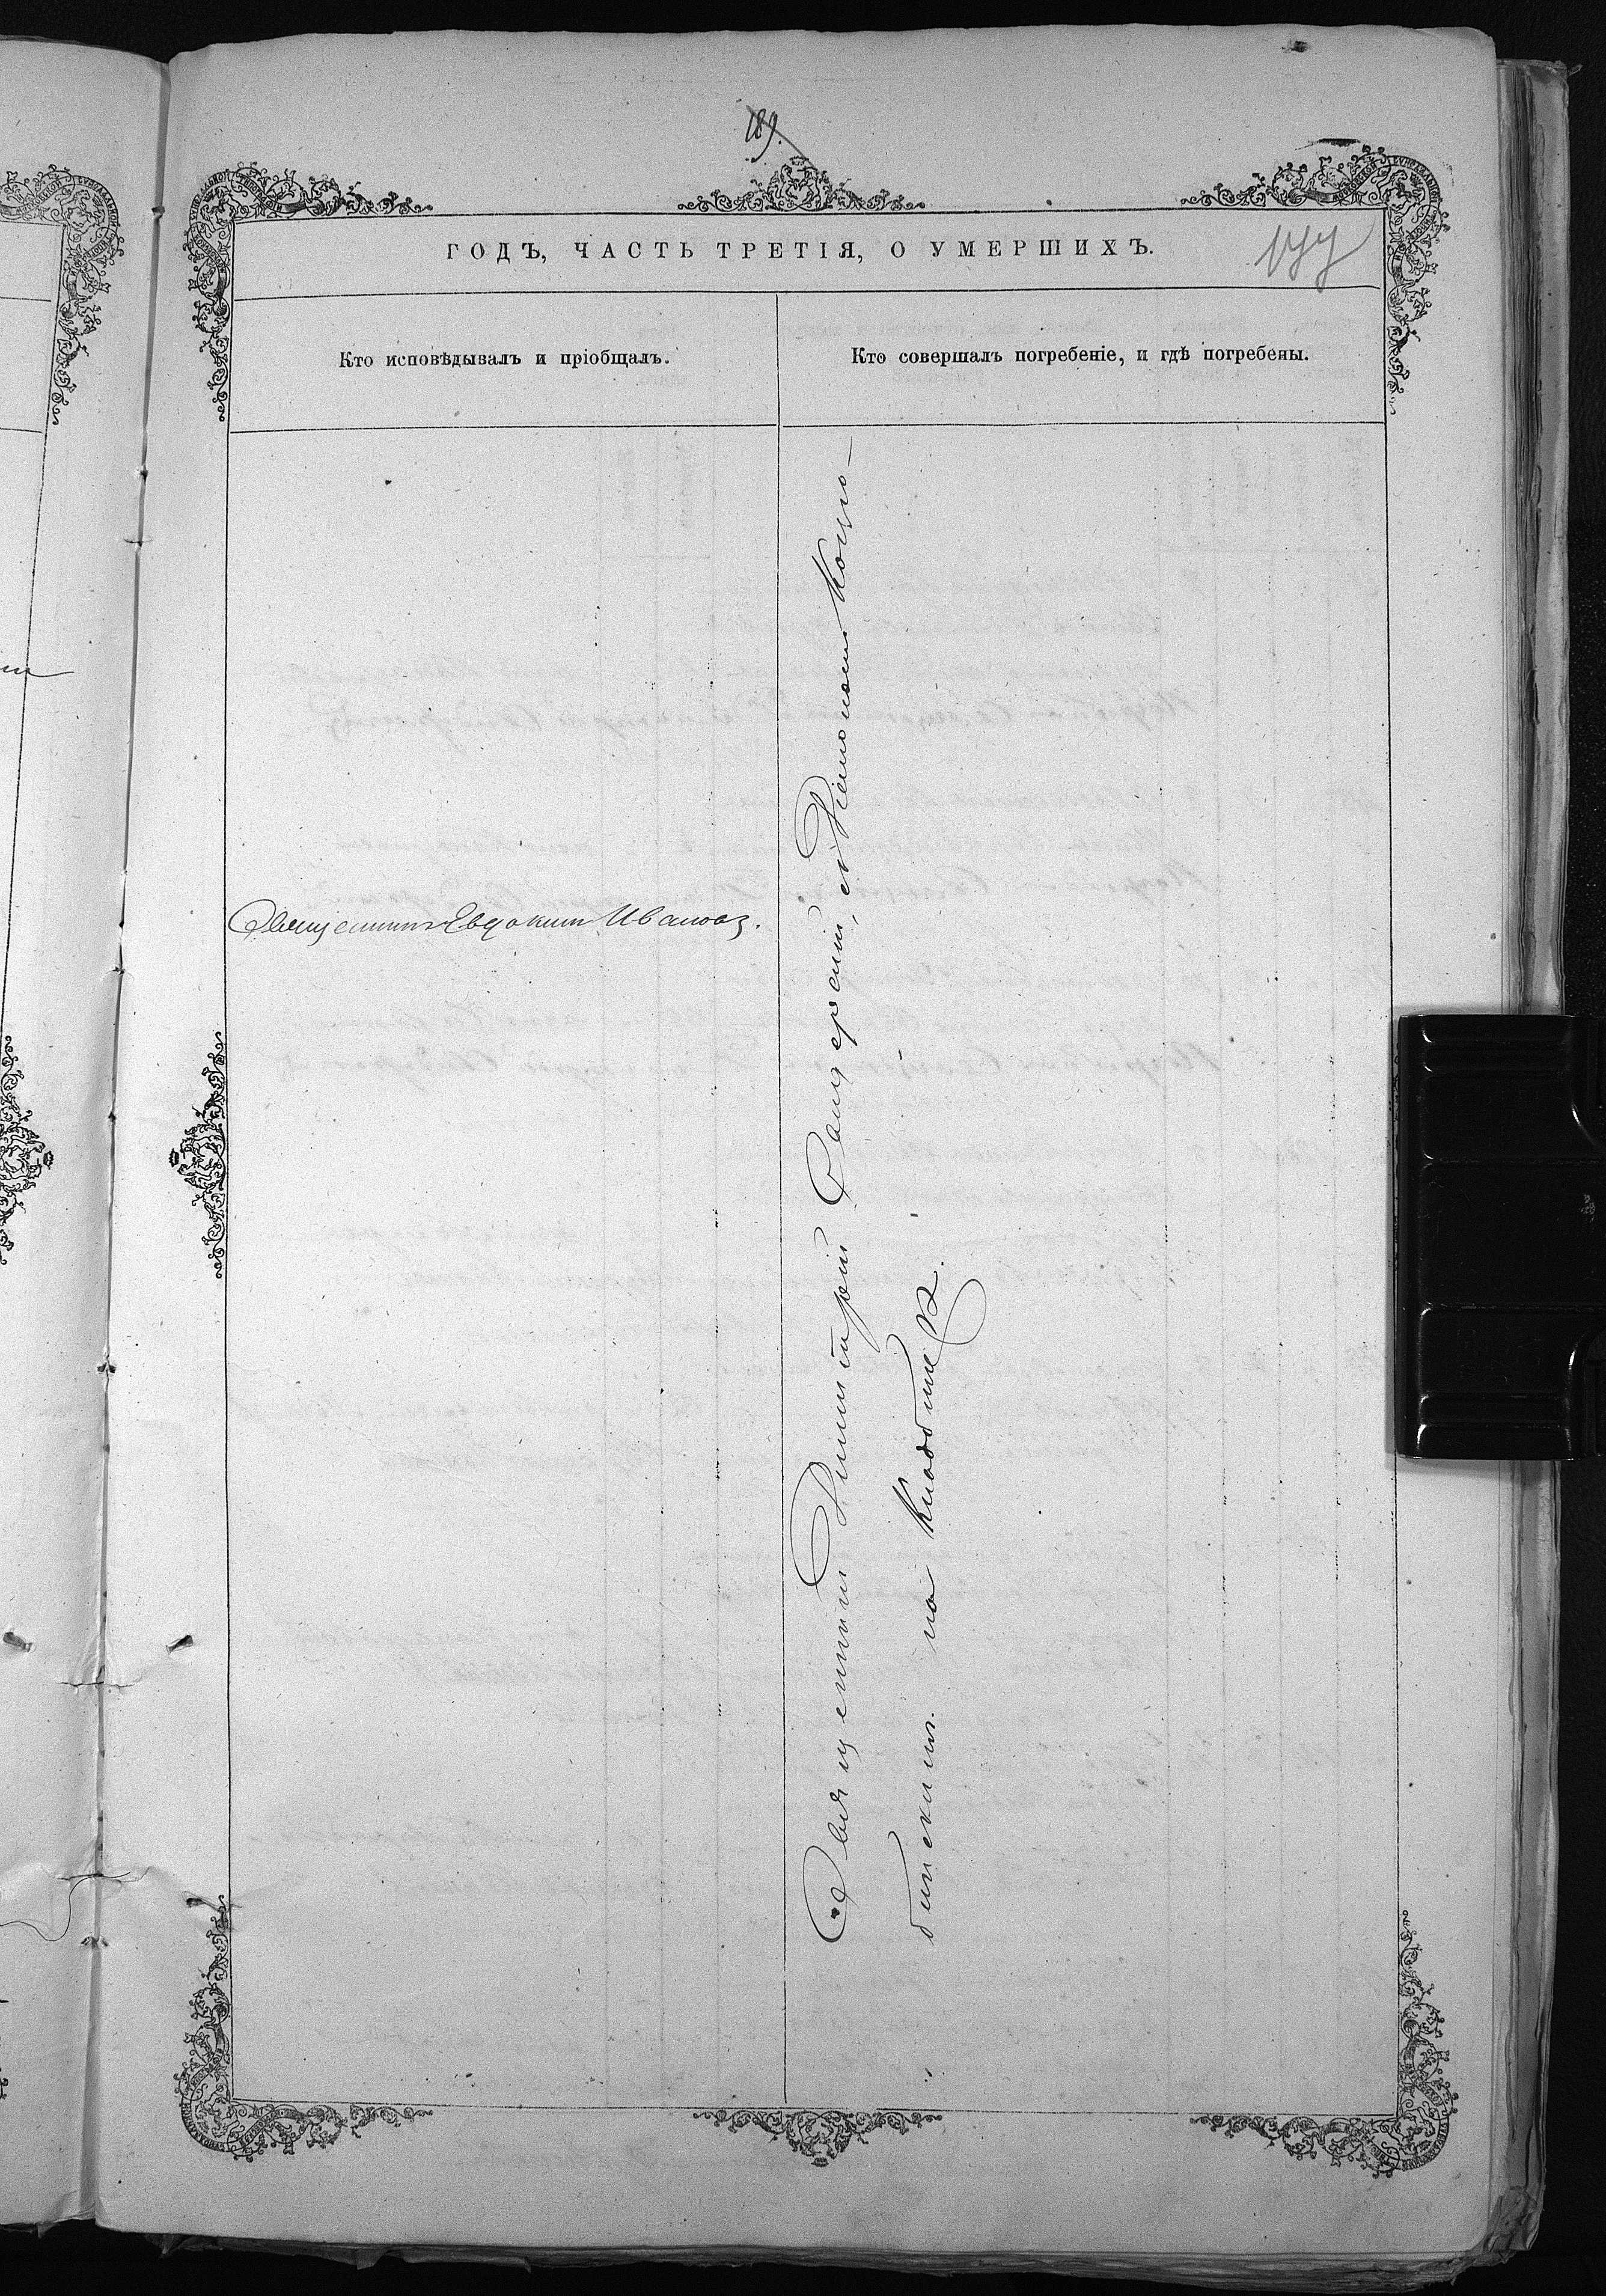 189.
ГОДЪ, ЧАСТЬ ТРЕТІЯ, О УМЕРШИХЪ.
177
Кто исповѣдывалъ и пріобщалъ.
Кто совершалъ погребеніе, и гдѣ погребены.
Священникъ Евдокимъ Ивановъ.
Священникъ Димитрій съ Діакономъ
на кладбищѣ.